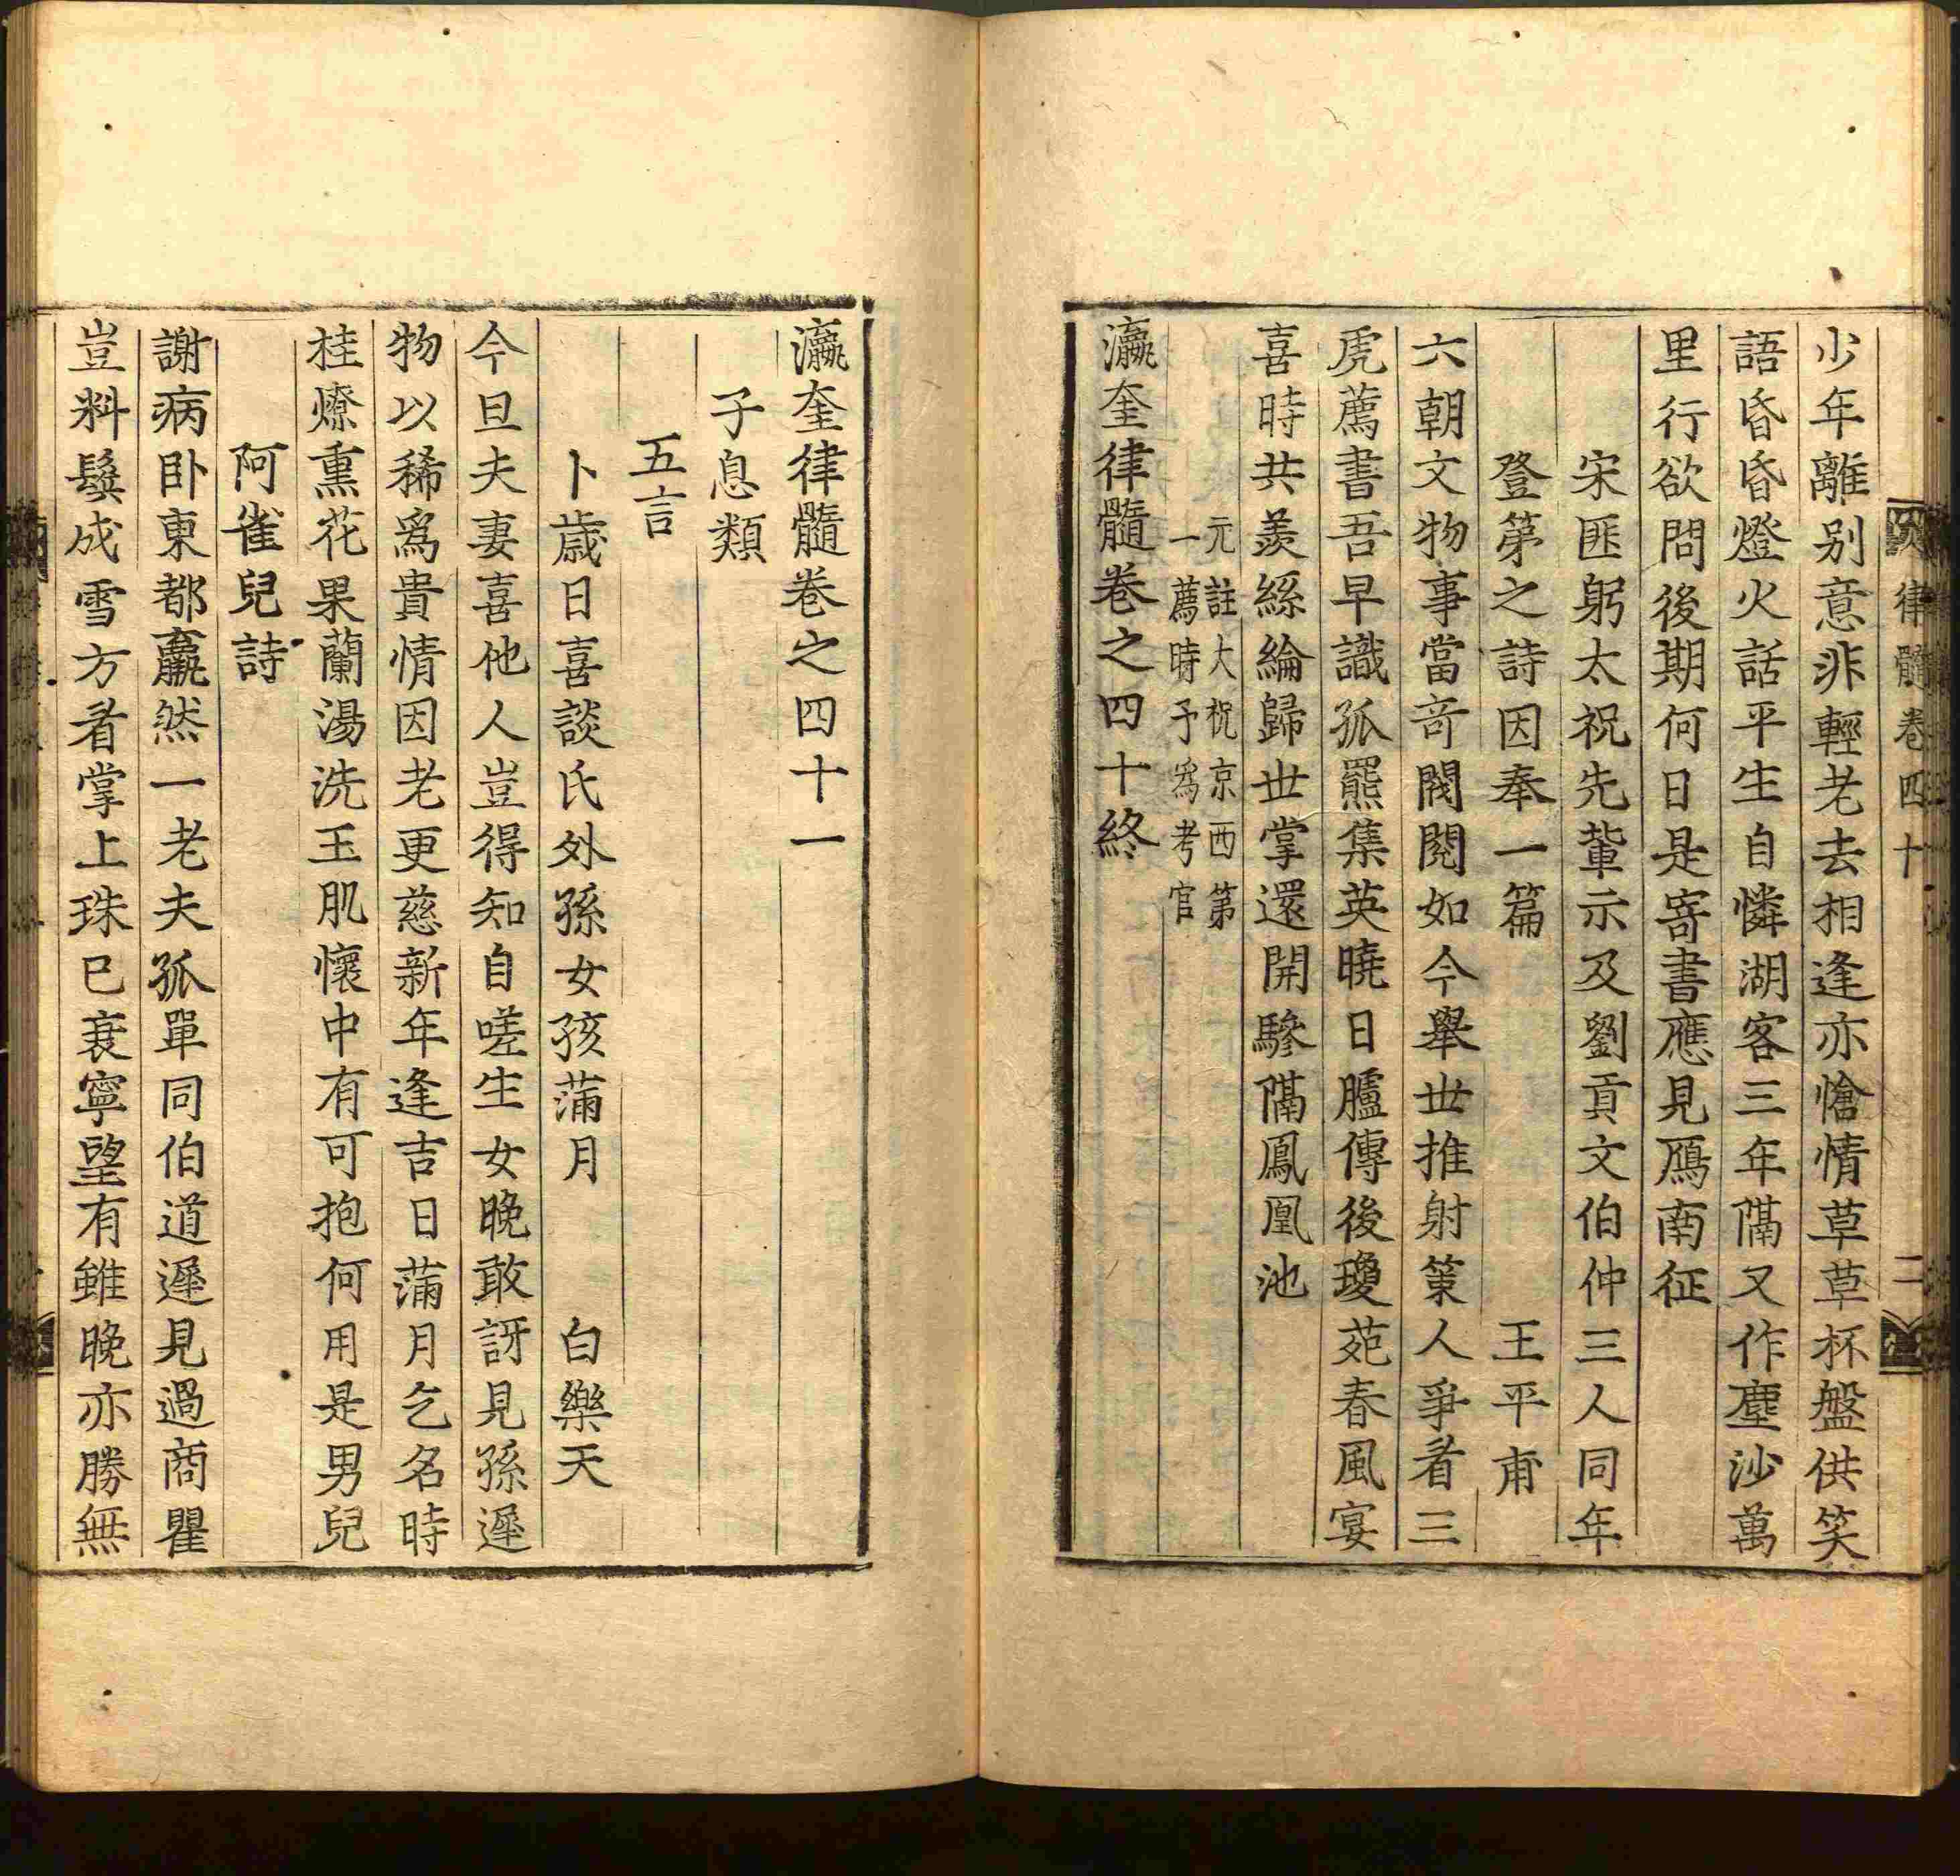 律髓卷四十 二
少年離别意非輕老去相逢亦愴情草草杯盤供笑
語昏昏燈火話平生自憐湖客三年隔又作塵沙萬
里行欲問後期何日是寄書應見鴈南征
宋匪躬太祝先軰示及劉貢文伯仲三人同年
登第之詩因奉一篇 王平甫
六朝文物事當竒閥閱如今舉世推射策人爭看三
虎薦書吾早識孤羆集英曉日臚傳後瓊苑春風宴
喜時共羨絲綸歸世掌還開驂隔鳳凰池
元註大祝京西第
一薦時予爲考官
瀛奎律髓卷之四十終
瀛奎律髓卷之四十一
子息類
五言
卜歲日喜談氏外孫女孩滿月 白樂天
今旦夫妻喜他人豈得知自嗟生女晚敢訝見孫遲
物以稀爲貴情因老更慈新年逢吉日滿月乞名時
桂燎熏花果蘭湯洗玉肌懷中有可抱何用是男兒
阿雀兒詩
謝病卧東都羸然一老夫孤單同伯道遲見過商瞿
豈料鬂成雪方看掌上珠已衰寧望有雖晚亦勝無